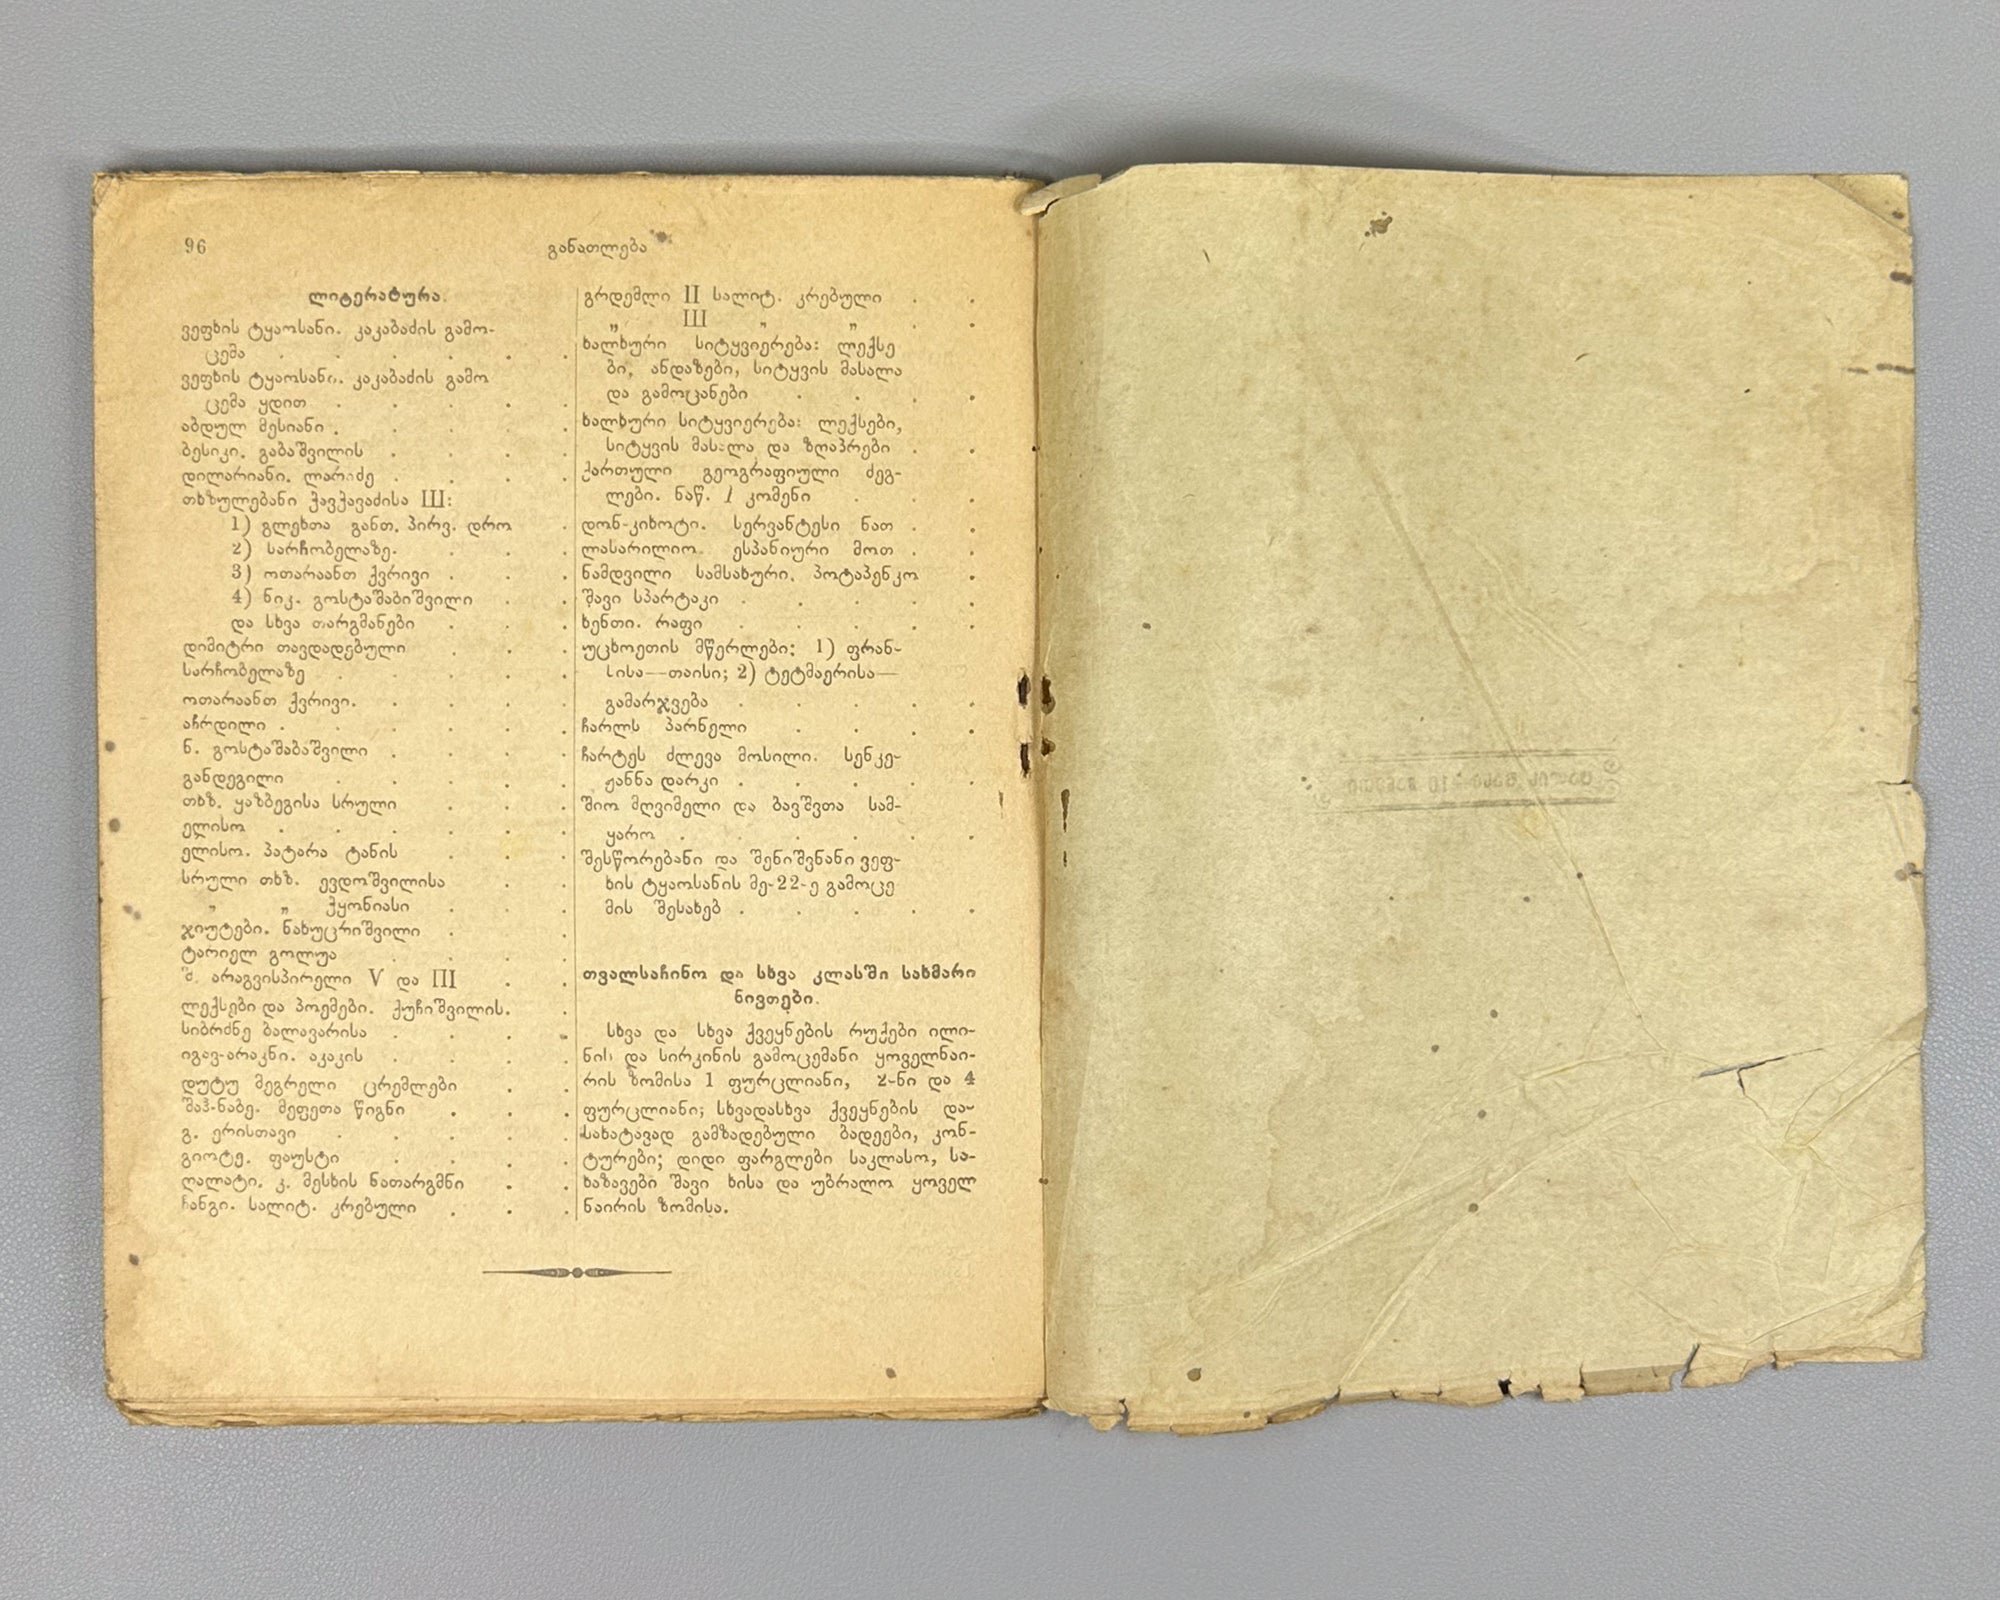 96
განათლება
ლიტერატურა.
ვეფხის ტყაოსანი. კაკაბაძის გამო-
ცემა . . . . . .
ვეფხის ტყაოსანი. კაკაბაძის გამო
ცემა ყდით . . . . .
აბდულ მესიანი . . . . .
ბესიკი. გაბაშვილის . . . .
დილარიანი. ლარაძე . . . .
თხზულებანი ჭავჭავაძისა III:
1) გლეხთა განთ. პირვ. დრო .
2) სარჩობელაზე. . . .
3) ოთარაანთ ქვრივი . . .
4) ნიკ. გოსტაშაბიშვილი . .
და სხვა თარგმანები . . .
დიმიტრი თავდადებული . . .
სარჩობელაზე . . . . .
ოთარაანთ ქვრივი. . . . .
აჩრდილი . . . . . .
ნ. გოსტაშაბაშვილი . . . .
განდეგილი . . . . .
თხზ. ყაზბეგისა სრული . . .
ელისო . . . . . .
ელისო. პატარა ტანის . . .
სრული თხზ. ევდოშვილისა . .
„ „ ჭყონიასი . . .
ჯიუტები. ნახუცრიშვილი . . .
ტარიელ გოლუა . . . .
შ. არაგვისპირელი V და III . .
ლექსები და პოემები. ქუჩიშვილის. .
სიბრძნე ბალავარისა . . . .
იგავ-არაკნი. აკაკის . . . .
დუტუ მეგრელი ცრემლები . .
შაჰ-ნაბე. მეფეთა წიგნი . . .
გ. ერისთავი . . . . .
გიოტე. ფაუსტი . . . .
ღალატი. კ. მესხის ნათარგმნი . .
ჩანგი. სალიტ. კრებული . . .
გრდემლი II სალიტ. კრებული . .
„ III „ „ . .
ხალხური სიტყვიერება: ლექსე
ბი, ანდაზები, სიტყვის მასალა
და გამოცანები . . . .
ხალხური სიტყვიერება: ლექსები,
სიტყვის მასალა და ზღაპრები . .
ქართული გეოგრაფიული ძეგ-
ლები. ნაწ. I კომენი . . .
დონ-კიხოტი. სერვანტესი ნათ . .
ლასარილიო. ესპანიური მოთ . .
ნამდვილი სამსახური. პოტაპენკო .
შავი სპარტაკი . . . . .
ხენთი. რაფი . . . . .
უცხოეთის მწერლები: 1) ფრან-
სისა—თაისი; 2) ტეტმაერისა—
გამარჯვება . . . . .
ჩარლს პარნელი . . . .
ჩარტეს ძლევა მოსილი. სენკე-
ჟანნა დარკი . . . . .
შიო მღვიმელი და ბავშვთა სამ-
ყარო . . . . . .
შესწორებანი და შენიშვნანი ვეფ-
ხის ტყაოსანის მე-22-ე გამოცე
მის შესახებ . . . . .
თვალსაჩინო და სხვა კლასში სახმარი
ნივთები.
სხვა და სხვა ქვეყნების რუქები ილი-
ნის და სირკინის გამოცემანი ყოველნაი-
რის ზომისა 1 ფურცლიანი, 2-ნი და 4
ფურცლიანი; სხვადასხვა ქვეყნების და-
სახატავად გამზადებული ბადეები, კონ-
ტურები; დიდი ფარგლები საკლასო, სა-
ხაზავები შავი ხისა და უბრალო ყოველ
ნაირის ზომისა.